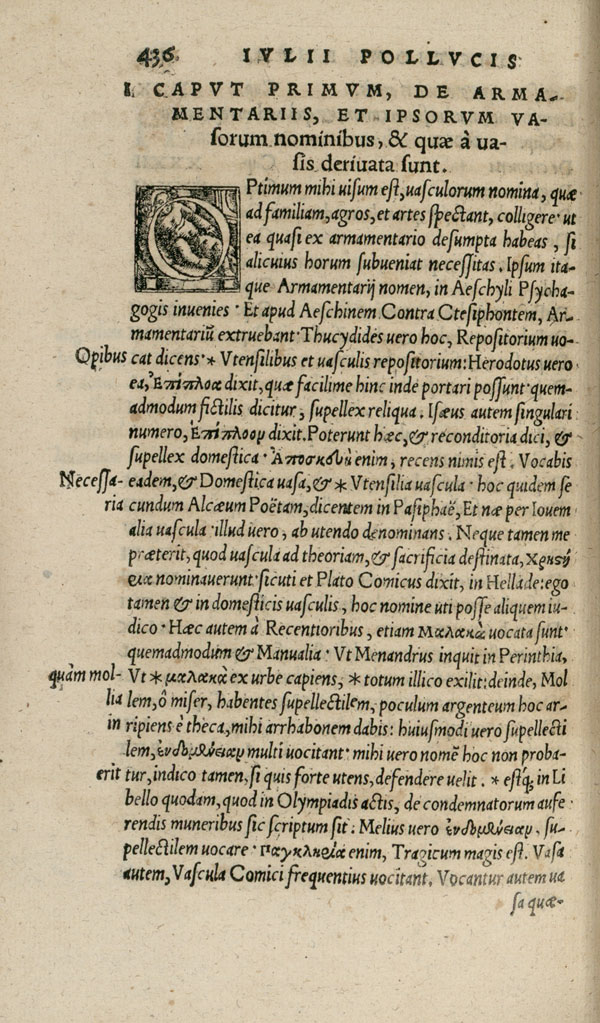 436 IVLII POLLVCIS
I. CAPVT PRIMVM, DE ARMA-
MENTARIIS, ET IPSORVM VA-
sorum nominibus, & quæ à ua-
sis deriuata sunt.
OPtimum mihi uisum est, uasculorum nomina, quæ
ad familiam, agros, et artes spectant, colligere· ut
ea quasi ex armamentario desumpta habeas, si
alicuius horum subueniat necessitas. Ipsum ita-
que Armamentarij nomen, in Aeschyli Psycha-
gogis inuenies· Et apud Aeschinem Contra Ctesiphontem, Ar-
mamentariũ extruebant· Thucydides uero hoc, Repositorium uo-
Opibus cat dicens· * Vtensilibus et uasculis repositorium: Herodotus uero
ea, Ἐπίπλοα dixit, quæ facilime hinc inde portari possunt· quem-
admodum fictilis dicitur, supellex reliqua. Isæus autem singulari
numero, Ἐπίπλοομ dixit. Poterunt hæc, & reconditoria dici, &
supellex domestica· Ἀποσκευὴ enim, recens nimis est. Vocabis
Necessa- eadem, & Domestica uasa, & * Vtensilia uascula· hoc quidem se
ria cundum Alcæum Poëtam, dicentem in Pasiphaë, Et næ per Iouem
alia uascula· illud uero, ab utendo denominans. Neque tamen me
præterit, quod uascula ad theoriam, & sacrificia destinata, χρηστή
ρια nominauerunt· sicuti et Plato Comicus dixit, in Hellade: ego
tamen & in domesticis uasculis, hoc nomine uti posse aliquem iu-
dico· Hæc autem à Recentioribus, etiam Μαλακὰ uocata sunt·
quemadmodum & Manualia· Vt Menandrus inquit in Perinthia,
quàm mol- Vt * μαλακὰ ex urbe capiens, * totum illico exilit: deinde, Mol
lia lem, ô miser, habentes supellectilem, poculum argenteum hoc ar-
in ripiens è theca, mihi arrhabonem dabis: huiusmodi uero supellecti
lem, ἐνδομθύειαμ multi uocitant· mihi uero nomẽ hoc non proba-
erit tur, indico tamen, si quis forte utens, defendere uelit. * estq; in Li
bello quodam, quod in Olympiadis actis, de condemnatorum aufe
rendis muneribus sic scriptum sit. Melius uero ἐνδομθύειαμ, su-
pellectilem uocare· παγκληρία enim, Tragicum magis est. Vasa
autem, Vascula Comici frequentius uocitant. Vocantur autem ua
sa quæ-